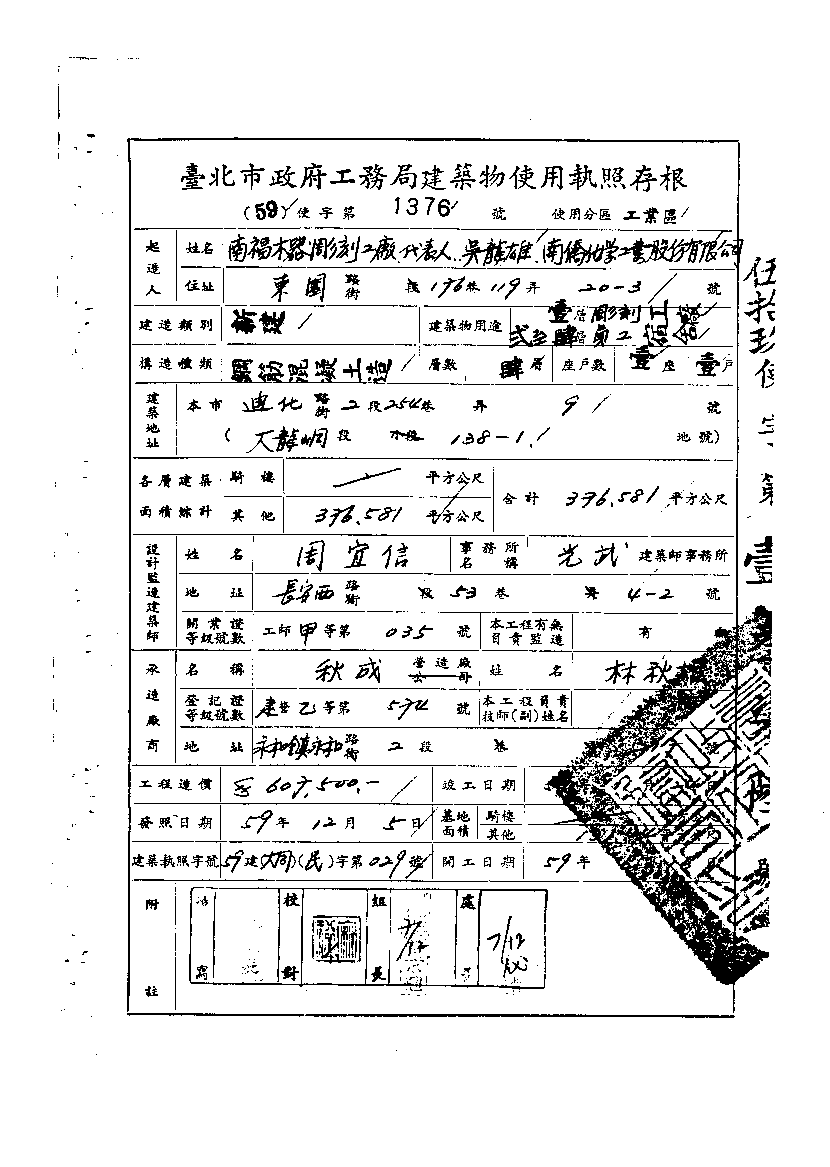 臺北市政府工務局建築物使用執照存根
(59)使字第 1376 號 使用分區 工業區
起造人 姓名 南福木器彫刻工廠代表人 吳龍雄 南僑化學工業股份有限公司
住址 東園 路街 段 176巷 119弄 20-3 號
建造類別 新建 建築物用途 壹層彫刻工廠
貳至肆層員工宿舍
構造種類 鋼筋混凝土造 層數 肆層 座戶數 壹座 壹戶
建築地址 本市 迪化 路街 2段254巷 弄 91 號
(大龍峒段 小段 138-1 地號)
各層建築面積綜計 騎樓 平方公尺
其他 376.581 平方公尺 合計 376.581 平方公尺
設計監造建築師 姓名 周宜信 事務所名稱 光武 建築師事務所
地址 長安西 路街 段 53巷 弄 4-2 號
開業證等級號數 工師甲等第 035 號 本工程有無負責監造 有
承造廠商 名稱 秋成 營造廠公司 姓名 林秋
登記證等級號數 建登乙等第 574 號 本工程負責技師(副)姓名
地址 永和鎮永和 路街 2段 巷 號
工程造價 607,500.- 竣工日期
發照日期 59年 12月 5日 基地面積 騎樓 其他
建築執照字號 59建(大同)(民)字第029號 開工日期 59年
附註
校對 組長 處
7/12
伍拾玖使字第壹